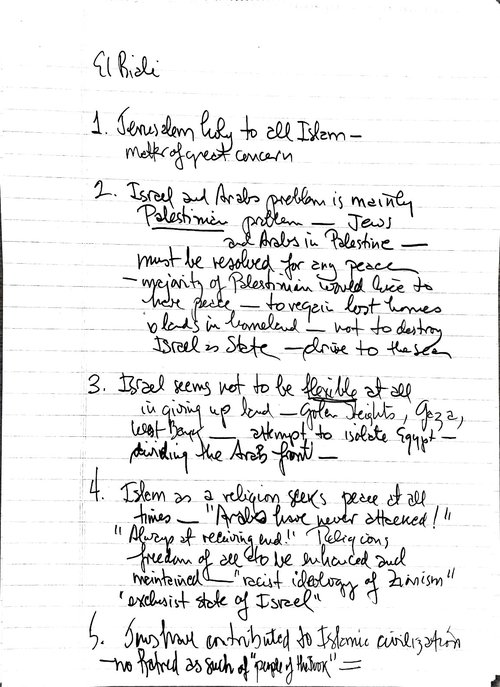 El Biali
1. Jerusalem holy to all Islam –
matter of great concern
2. Israel and Arabs problem is mainly
Palestinian problem — Jews
and Arabs in Palestine —
must be resolved for any peace
– majority of Palestinian would like to
have peace — to regain lost homes
& lands in homeland — not to destroy
Israel as State — drive to the sea
3. Israel seems not to be flexible at all
in giving up land — Golan Heights, Gaza,
West Bank — attempt to isolate Egypt —
dividing the Arab front —
4. Islam as a religion seeks peace at all
times — "Arabs have never attacked!"
"Always at receiving end!" Religious
freedom of all to be enhanced and
maintained — "racist ideology of Zionism"
"exclusist state of Israel"
5. Jews have contributed to Islamic civilization
– no hatred as such of "people of the book" =